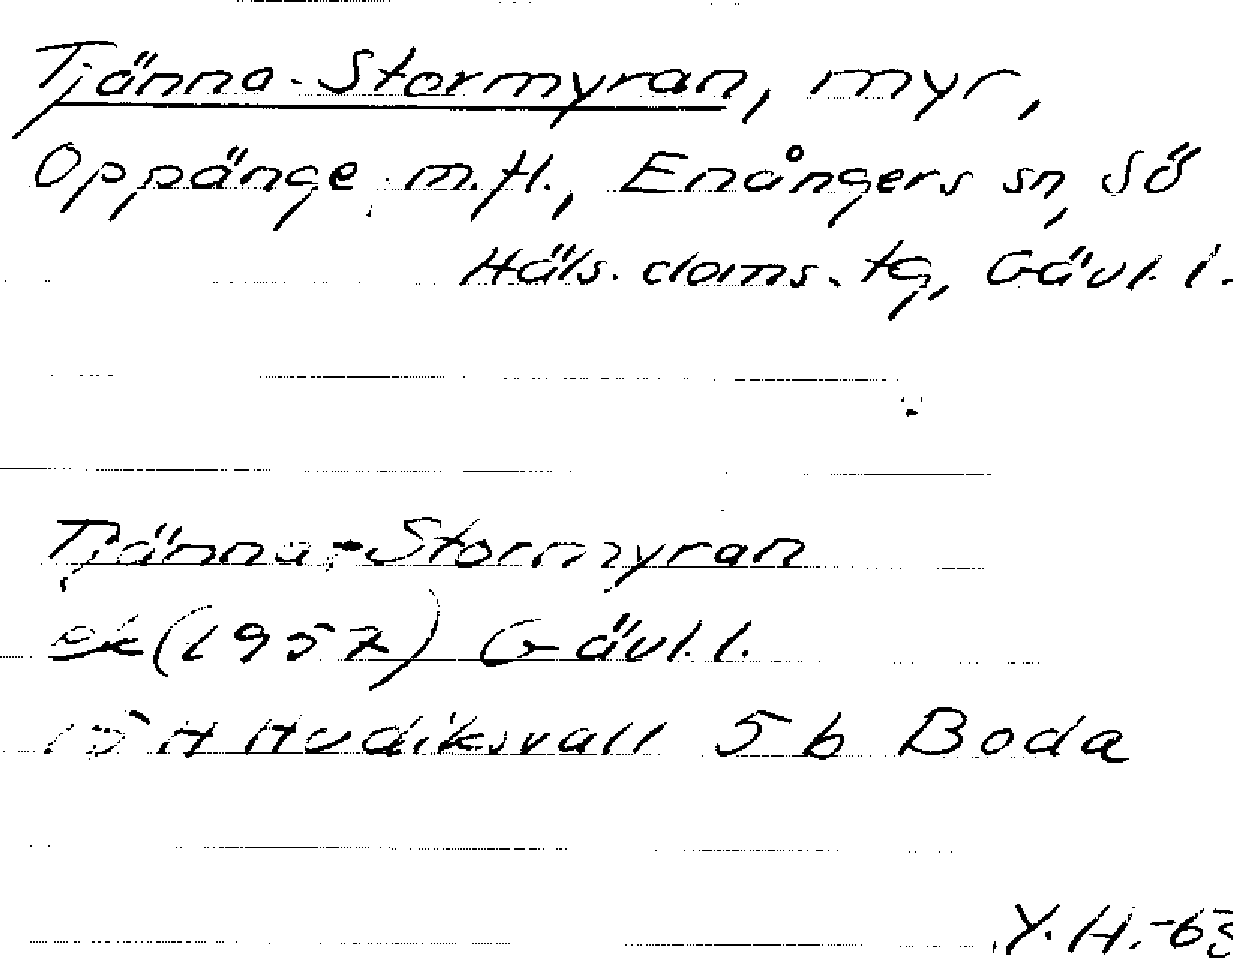 Tjänna-Stormyran, myr,
Oppänge m.fl., Enångers sn, Sö
Häls. doms. tg, Gävl. l.
Tjänna-Stormyran
ek (1957) Gävl. l.
15 H Hudiksvall 5 b Boda
Y. H. -63